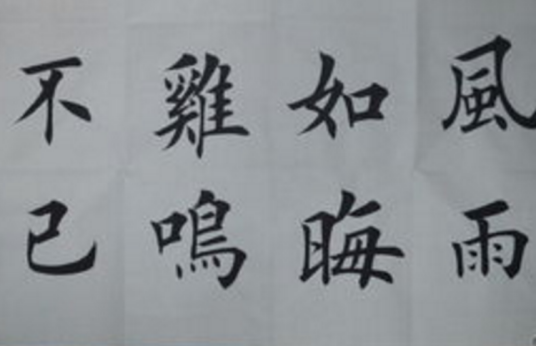 風雨
如晦
雞鳴
不已